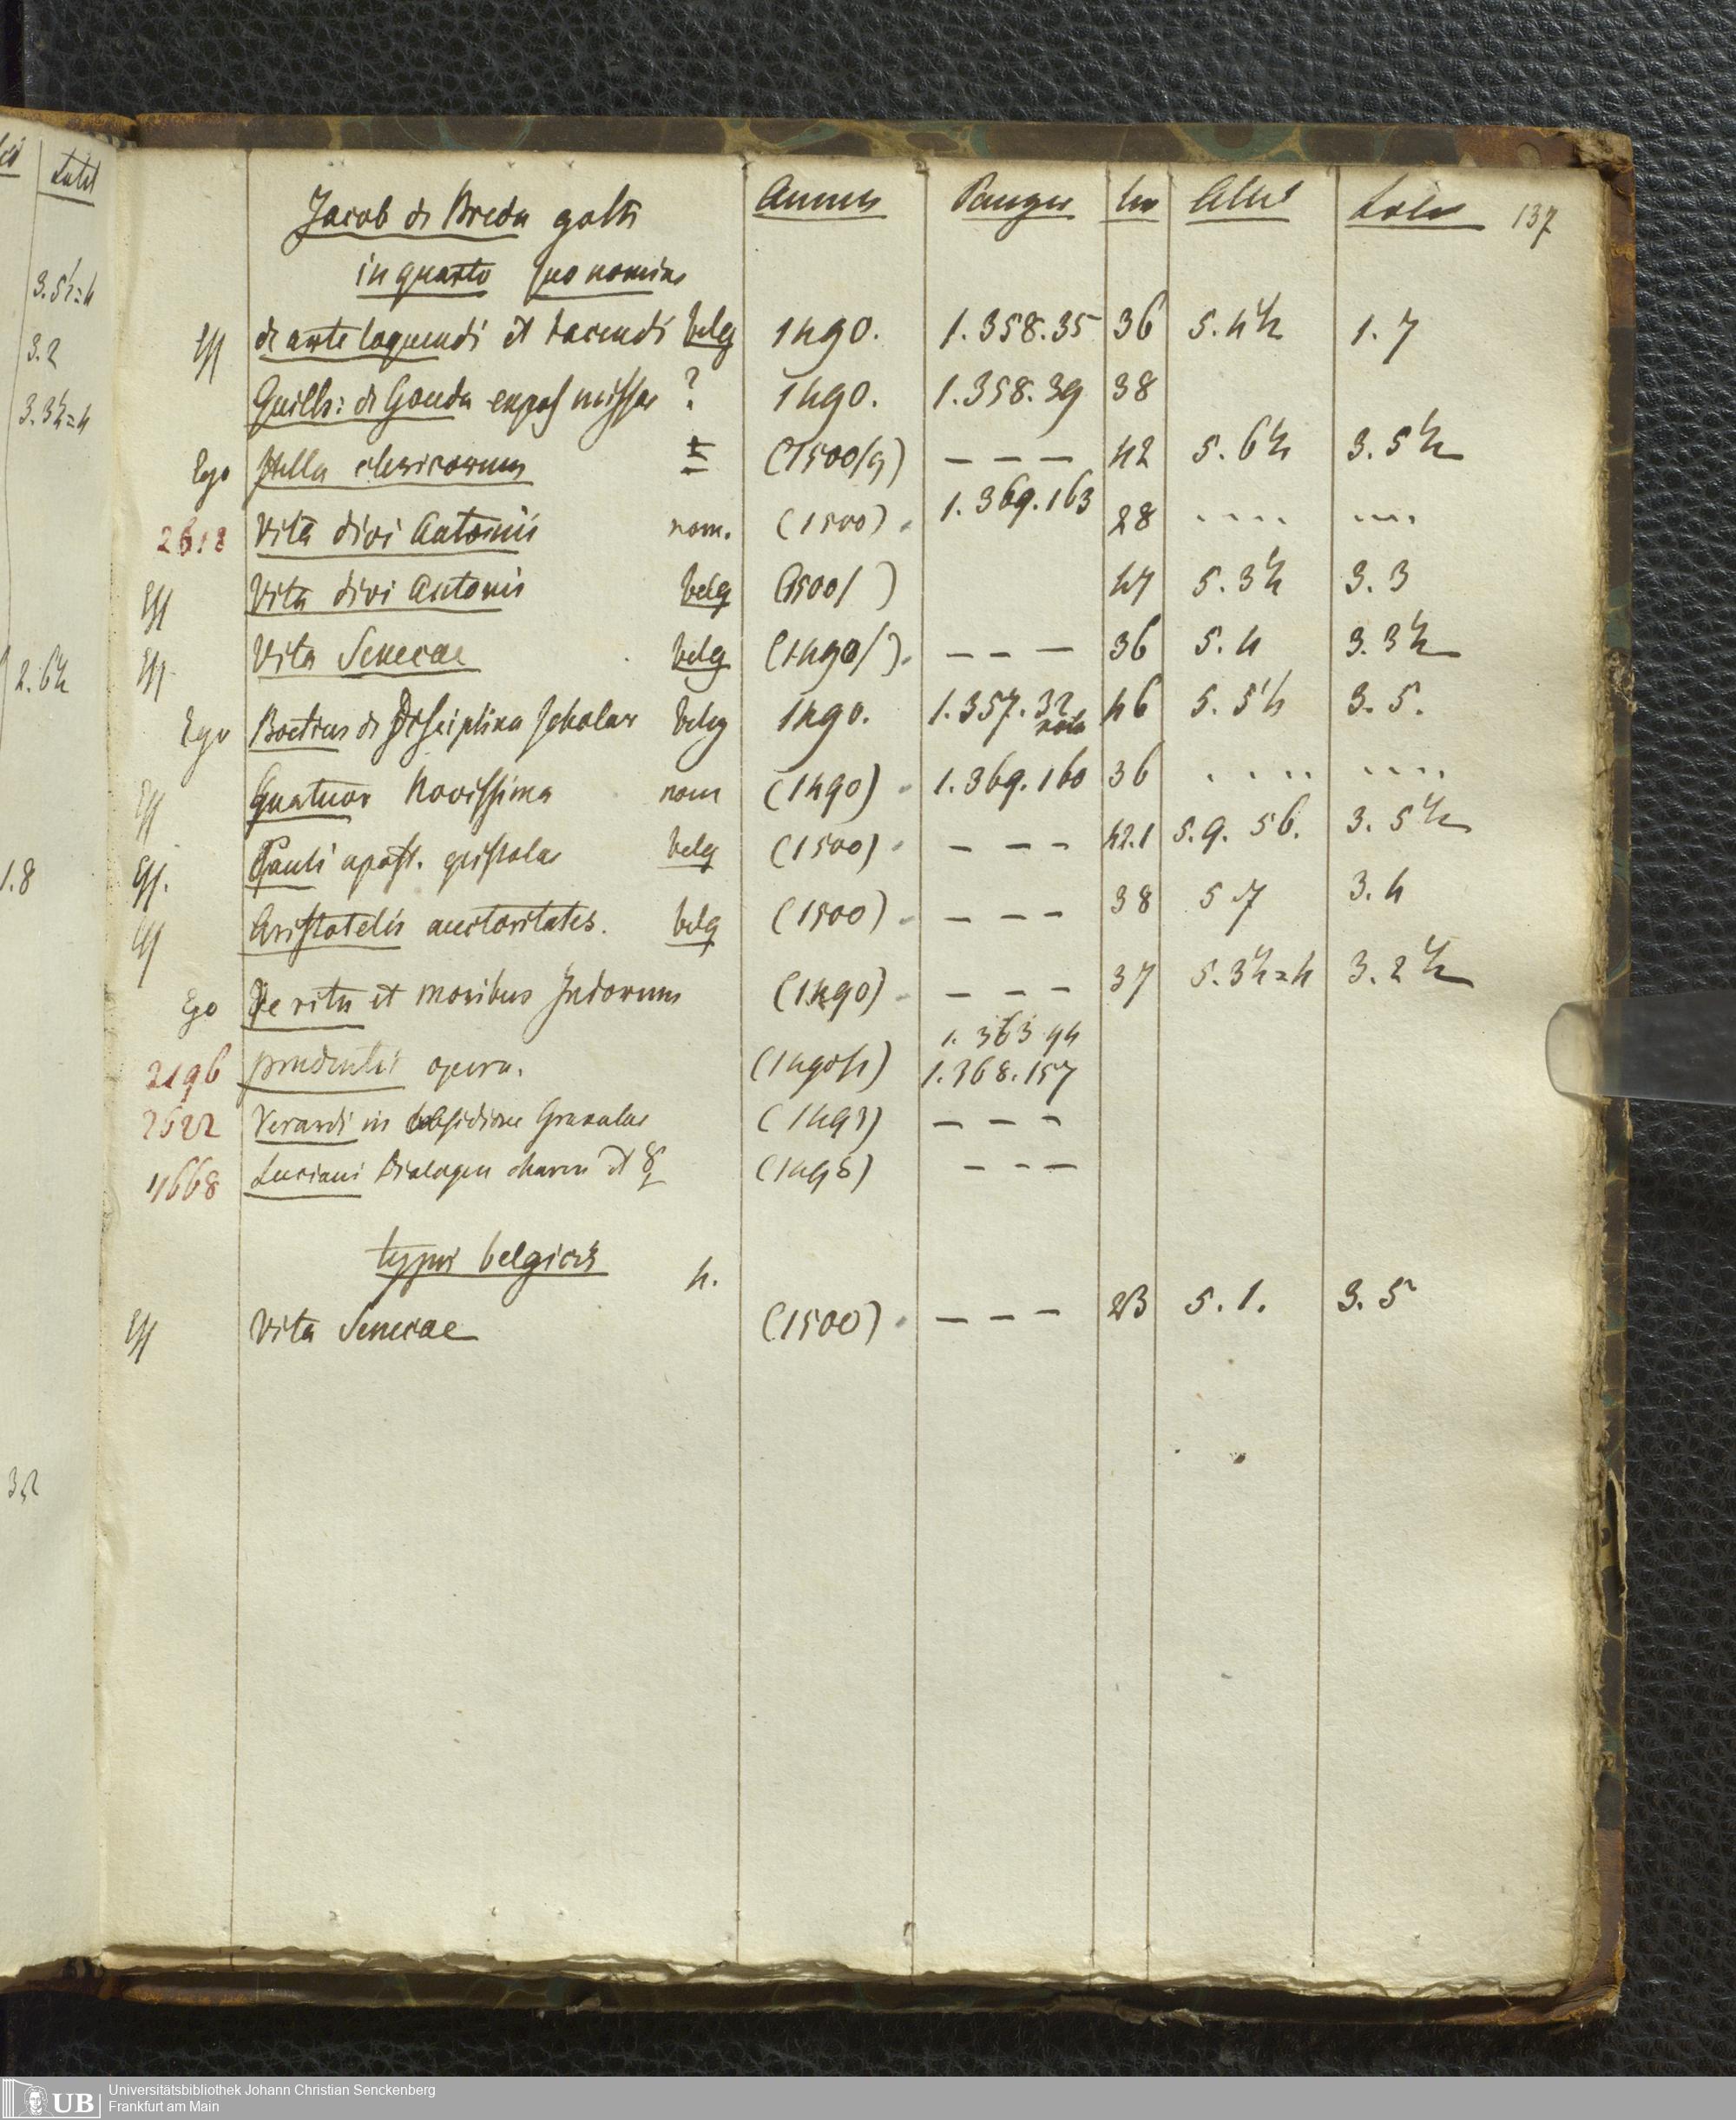 Latit
3.5½=4
3.2
3.3½=4
2.6½
1.8
3.2
Jacob de Breda goth Annus Panzer lin Altit Latit 137
in quarto sno nomine
Eff de arte loquendi et tacendi belg 1490. 1.358.35 36 5.4½ 1.7
Guills: de Gouda expos missae ? 1490. 1.358.39 38
Ego stella clericorum (1500/9) – – – 42 5.6½ 3.5½
2618 Vita divi Antonii nom. (1500). 1.369.163 28 .... ....
Eff Vita divi Antonii belg (1500/ ) 47 5.3½ 3.3
Eff Vita Senecae belg (1490/ ). – – – 36 5.4 3.3½
Ego Boetius de Disciplina scholar belg 1490. 1.357.32 nota 46 5.5½ 3.5.
Eff Quatuor Novissima nom (1490) 1.369.160 36 .... ....
Eff. Pauli apost. epistolae belg (1500) – – – 42.1 5.9. 56. 3.5½
Eff Aristotelis auctoritates. belg (1500) – – – 38 5.7 3.4
Ego De ritu et moribus Indorum (1490) – – – 37 5.3½=4 3.2½
1.363 94
2196 prudentii opera. (1490/1) 1.368.157
2622 Verardi in obsidione Granatae (1493) – – –
4668 Luciani Dialogen charon et (1498) – – –
typis belgicis
4.
Eff Vita Senecae (1500). – – – 23 5.1. 3.5
UB Universitätsbibliothek Johann Christian Senckenberg
Frankfurt am Main